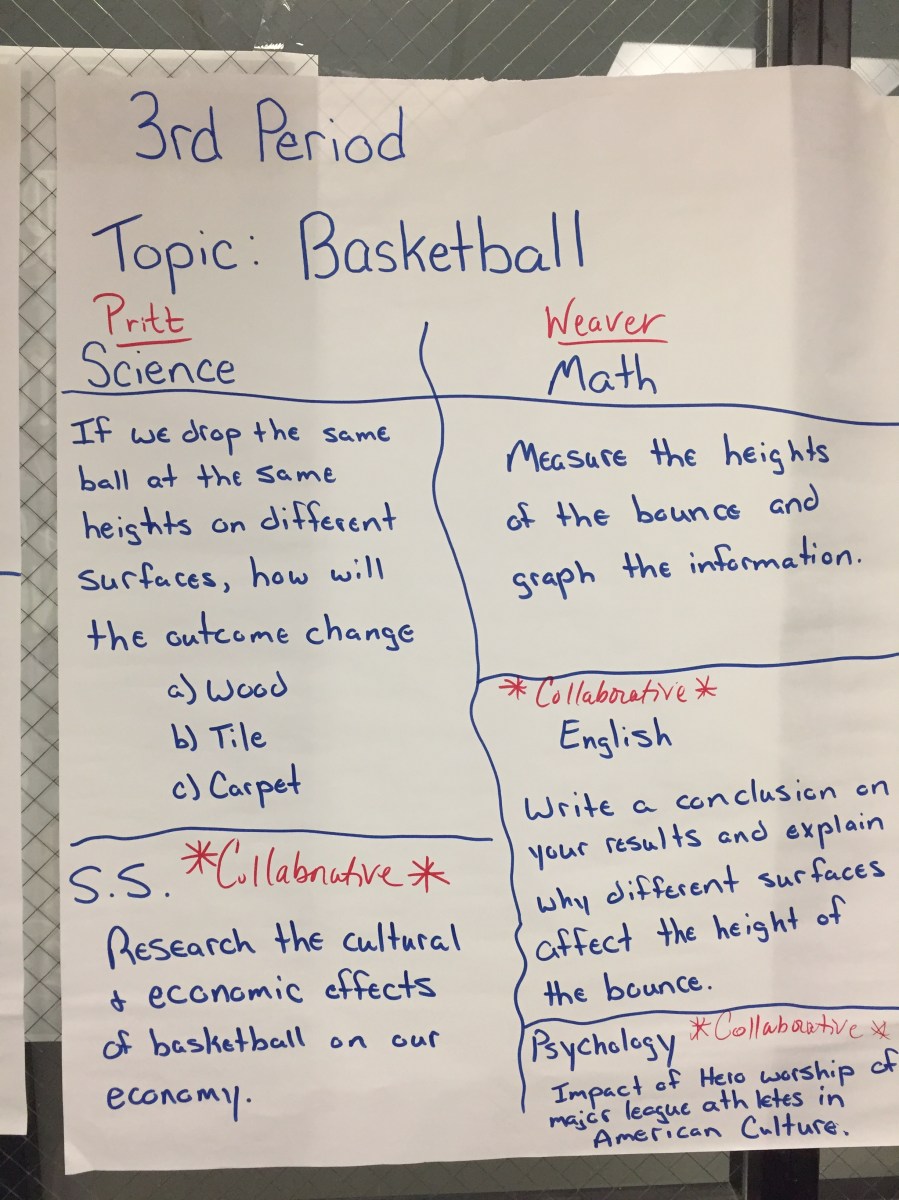 3rd Period
Topic: Basketball
Pritt
Science
If we drop the same
ball at the same
heights on different
surfaces, how will
the outcome change
a) Wood
b) Tile
c) Carpet
Weaver
Math
Measure the heights
of the bounce and
graph the information.
*Collaborative*
English
Write a conclusion on
your results and explain
why different surfaces
affect the height of
the bounce.
S.S. *Collaborative*
Research the cultural
& economic effects
of basketball on our
economy.
Psychology *Collaborative*
Impact of Hero worship of
major league athletes in
American Culture.